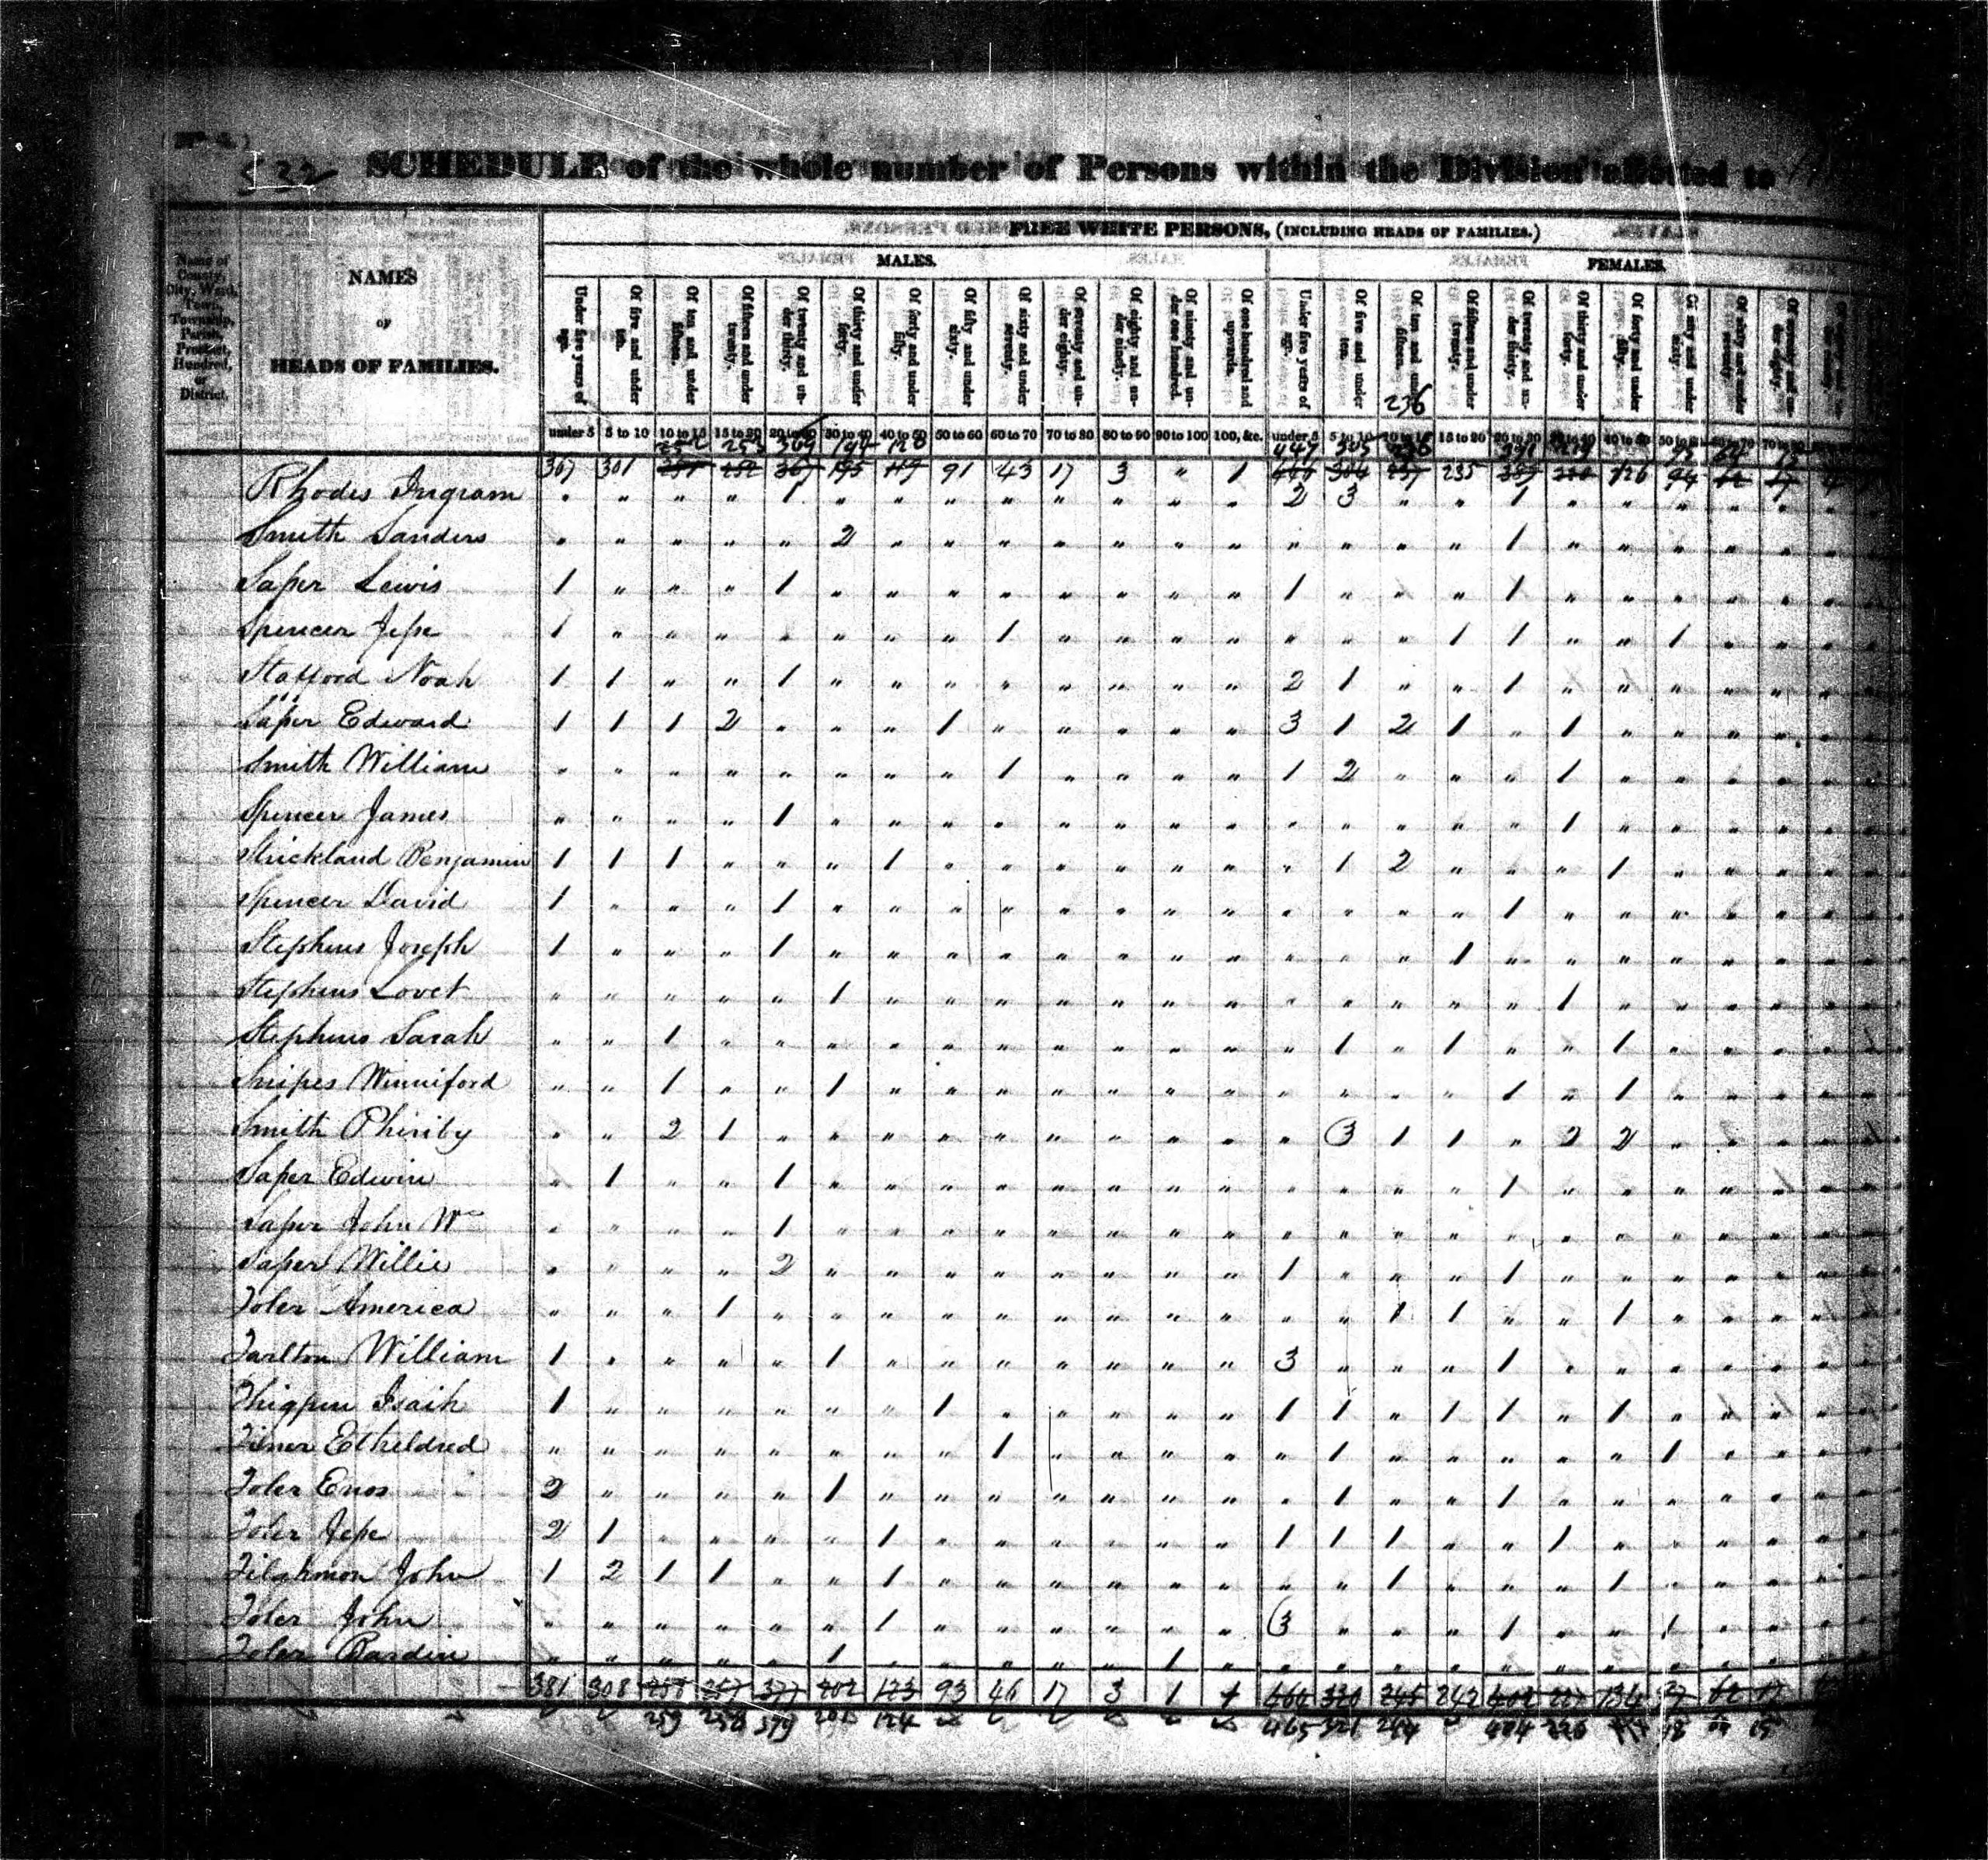 532 SCHEDULE of the whole number of Persons within the Division allotted to
FREE WHITE PERSONS, (INCLUDING HEADS OF FAMILIES.)
MALES. FEMALES.
Name of County, City, Ward, Town, Township, Parish, Precinct, Hundred, or District.
NAMES
OF
HEADS OF FAMILIES.
Under five years of age. Of five and under ten. Of ten and under fifteen. Of fifteen and under twenty. Of twenty and under thirty. Of thirty and under forty. Of forty and under fifty. Of fifty and under sixty. Of sixty and under seventy. Of seventy and under eighty. Of eighty and under ninety. Of ninety and under one hundred. Of one hundred and upwards. Under five years of age. Of five and under ten. Of ten and under fifteen. Of fifteen and under twenty. Of twenty and under thirty. Of thirty and under forty. Of forty and under fifty. Of fifty and under sixty. Of sixty and under seventy.
236
under 5 5 to 10 10 to 15 15 to 20 20 to 30 30 to 40 40 to 50 50 to 60 60 to 70 70 to 80 80 to 90 90 to 100 100, &c. under 5 5 to 10 10 to 15 15 to 20 20 to 30 30 to 40 40 to 50 50 to 60 60 to 70 70 to 80
253 194 118 447 305 236 391 219 95
367 301 251 252 367 195 119 91 43 17 3 " 1 446 304 237 235 389 220 126 94
Rhodes Ingram " " " " 1 " " " " " " " " 2 3 " " 1 " " " " "
Smith Sanders " " " " " 2 " " " " " " " " " " " 1 " " " " "
Saper Lewis 1 " " " 1 " " " " " " " " 1 " " " 1 " " " " "
Spencer Jesse 1 " " " " " " " 1 " " " " " " " 1 1 " " 1 " "
Stafford Noah 1 1 " " 1 " " " " " " " " 2 1 " " 1 " " " " "
Saper Edward 1 1 1 2 " " " 1 " " " " " 3 1 2 1 " 1 " " " "
Smith William " " " " " " " " 1 " " " " 1 2 " " " 1 " " " "
Spencer James " " " " 1 " " " " " " " " " " " " " 1 " " " "
Strickland Benjamin 1 1 1 " " " 1 " " " " " " " 1 2 " " " 1 " " "
Spencer David 1 " " " 1 " " " " " " " " " " " " 1 " " " " "
Stephens Joseph 1 " " " 1 " " " " " " " " " " " 1 " " " " " "
Stephens Lovet " " " " " 1 " " " " " " " " " " " " 1 " " " "
Stephens Sarah " " 1 " " " " " " " " " " " 1 " 1 " " 1 " " "
Snipes Winniford " " 1 " " 1 " " " " " " " " " " " 1 " 1 " " "
Smith Phiriby " " 2 1 " " " " " " " " " " 3 1 1 " 2 2 " " "
Saper Edwin " 1 " " 1 " " " " " " " " " " " " 1 " " " " "
Saper John Wm " " " " 1 " " " " " " " " " " " " " " " " " "
Saper Willie " " " " 2 " " " " " " " " 1 " " " 1 " " " " "
Toler America " " " 1 " " " " " " " " " " " 1 1 " " 1 " " "
Tarlton William 1 " " " " 1 " " " " " " " 3 " " " 1 " " " " "
Thigpen Isaih 1 " " " " " " 1 " " " " " 1 1 " 1 1 " 1 " " "
Tiner Etheldred " " " " " " " " 1 " " " " " 1 " " " " " 1 " "
Toler Enos 2 " " " " 1 " " " " " " " " 1 " " 1 " " " " "
Toler Jesse 2 1 " " " " 1 " " " " " " 1 1 1 " " 1 " " " "
Tilghmon John 1 2 1 1 " " 1 " " " " " " " " 1 " " " 1 " " "
Toler John " " " " " " 1 " " " " " " 3 " " " 1 " " 1 " "
Toler Bardin " " " " " 1 " " " " " 1 " " " " " " " " " " "
381 308 258 257 377 202 123 93 46 17 3 1 1 464 320 245 242 402 227 134 97
259 258 379 201 124 465 321 244 404 226 98